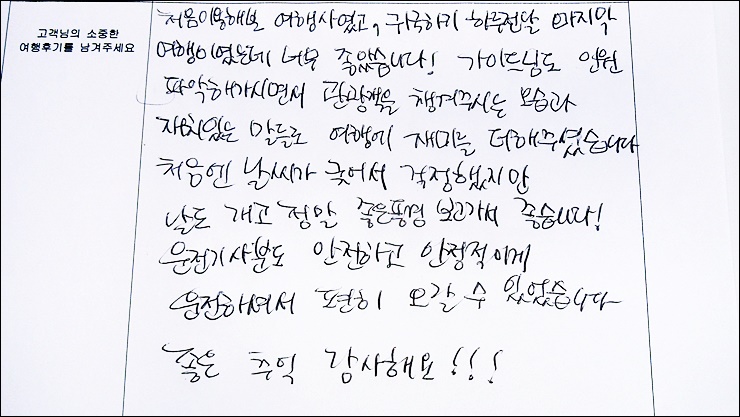 고객님의 소중한
여행후기를 남겨주세요
처음이용해본 여행사였고, 귀국하기 하루전날 마지막
여행이었는데 너무 좋았습니다! 가이드님도 인원
파악해가시면서 관광객을 챙겨주시는 모습과
재치있는 말들로 여행에 재미를 더해주셨습니다
처음엔 날씨가 궂어서 걱정했지만
날도 개고 정말 좋은풍경 보고가서 좋습니다!
운전기사분도 안전하고 안정적이게
운전하셔서 편히 오갈 수 있었습니다
좋은 추억 감사해요!!!